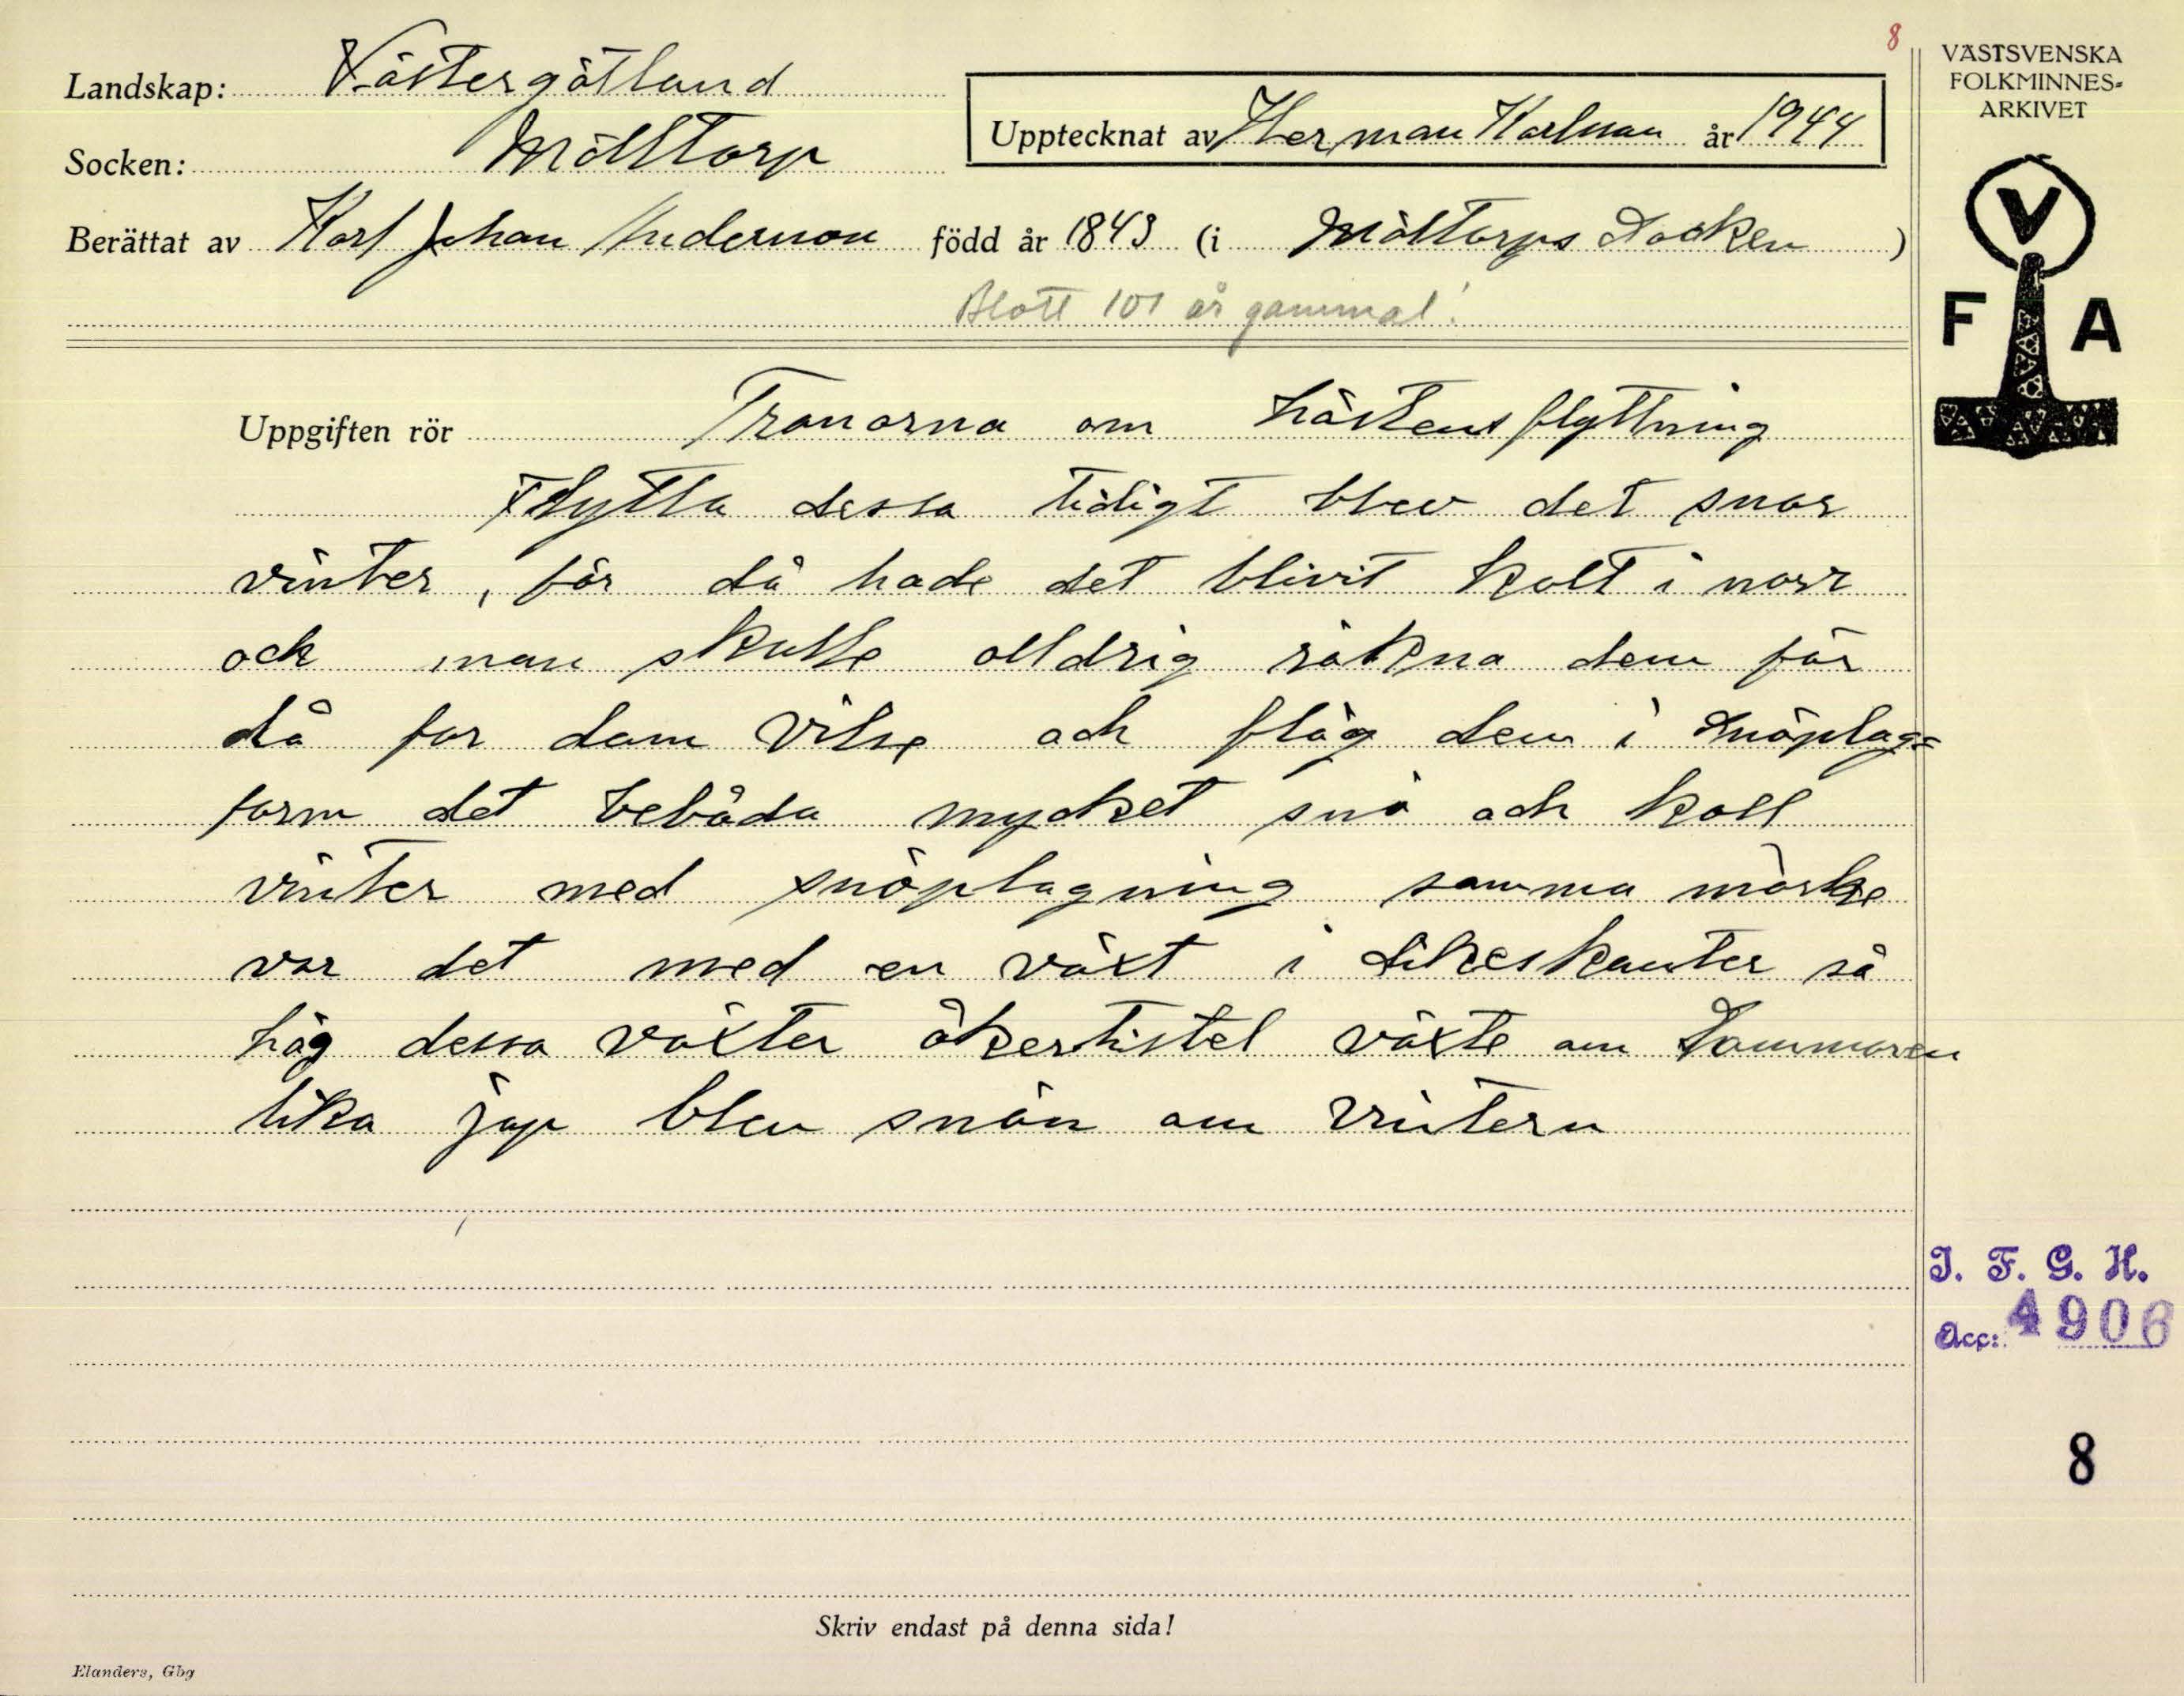 8
VÄSTSVENSKA
FOLKMINNES-
ARKIVET
Landskap: Västergötland
Upptecknat av Herman Karlsson år 1944
Socken: Mölltorp
Berättat av Karl Johan Andersson född år 1843 (i Mölltorps Socken)
Blott 101 år gammal!
V
F A
Uppgiften rör Tranorna om höstens flyttning
Flytta dessa tidigt blev det snar
vinter, för då hade det blivit kalt i norr
och man skulle alldrig räkna dem för
då for dam vilse och flög dem i snöplog=
form det bebåda mycket snö och kall
vinter med snöplogning samma märke
var det med en växt i dikeskanter så
hög dessa växter åkertistel växte om Sommaren
lika jup blev snön om vintern
I. F. G. H.
Acc: 4906
8
Skriv endast på denna sida!
Elanders, Gbg